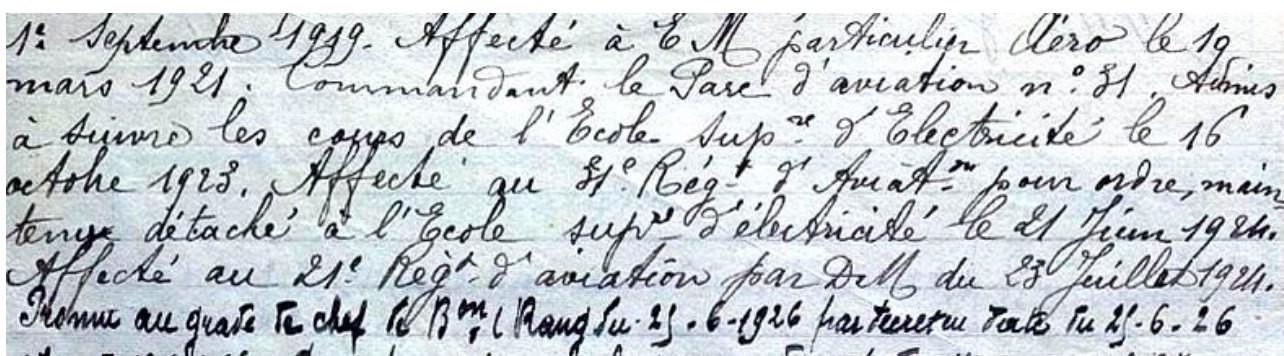 1er Septembre 1919. Affecté à E M particulier Aéro le 19
mars 1921. Commandant le Parc d'aviation n° 31. Admis
à suivre les cours de l'Ecole Supre d'Electricité le 16
octobre 1923. Affecté au 31e Régt d'Aviaton pour ordre, main
tenu détaché à l'Ecole supre d'électricité le 21 Juin 1924.
Affecté au 21e Régt d'aviation par D.M du 23 Juillet 1924.
Promu au grade de chef de Bon (Rang du 25.6.1926 par decret en date du 25.6.26